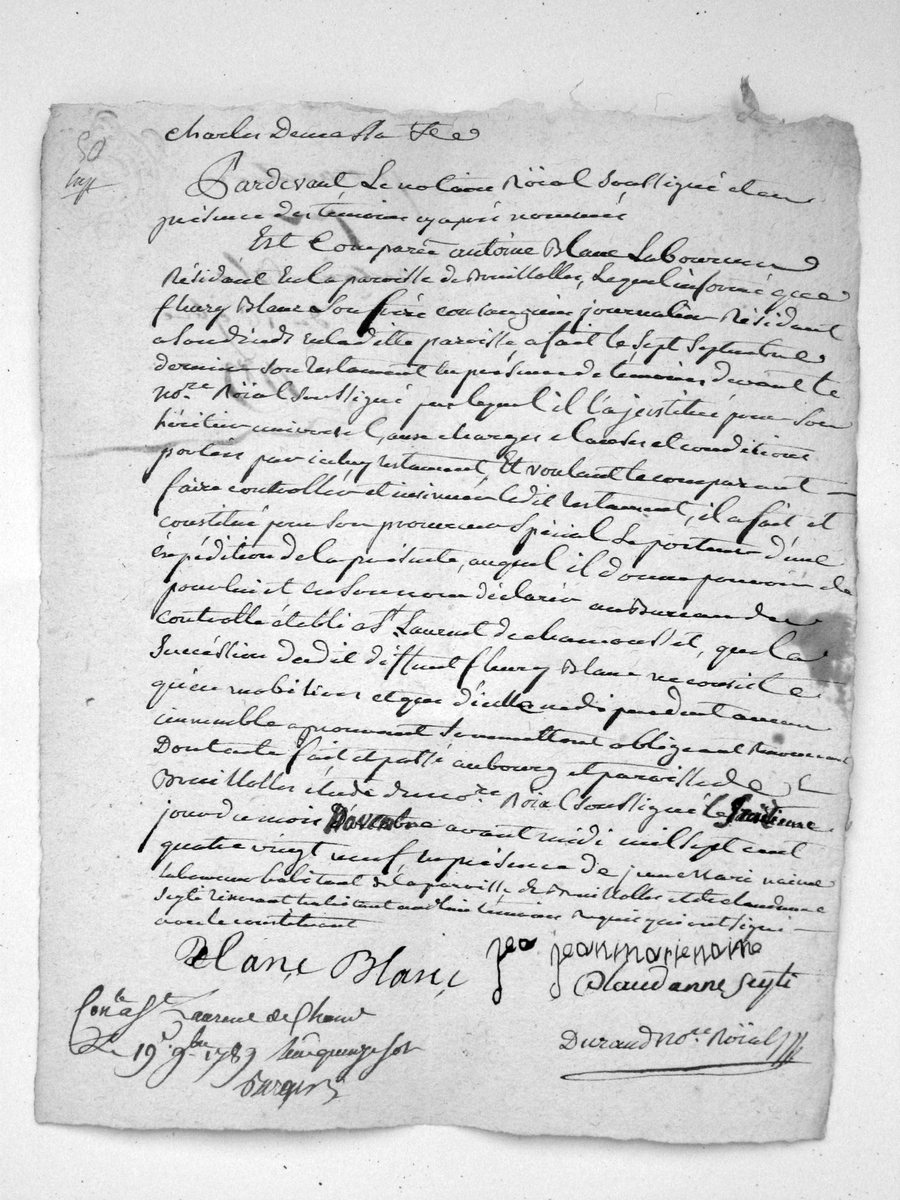 50
Pardevant Le notaire Röial Soussigné et en
présence des témoins cyaprés nommés
Est Comparû antoine Blanc Laboureur
Résidant En la paroisse de Brullolles, Lequel informé que
fleury Blanc Son frére consanguin journalier Résidant
en laditte paroisse a fait le Sept Septembre
dernier Son testament en présence de témoins devant le
no.re Röial Soussigné par lequel il l'a jnstitué pour Son
héritier universel, aux charges clauses et conditions
portées par icelluy testament Et voulant le comparant
faire controller et insinuer ledit testament, il a fait et
constitué pour Son procureur Spécial Le porteur d'une
éxpédition de la présente, auquel il donne pouvoir de
pour lui et en Son nom déclarér au Bureau du
controlle établi a St. Laurent de chamousset, que la
Succéssion dudit déffunt fleury Blanc ne consiste
qu'en mobiliers et que d'icelle ne dépendent aucun
immeuble aprouvant Soumettant obligeant Renonçant
Dont acte fait et passé au bourg et paroisse de
Brullolles étude du no.re Röial Soussigné le
jour du mois avant midi mil sept cent
quatre vingt neuf en présence de jean Marie
laboureur habitant de la paroisse de Brullolles et de claud anne
Seyti habitant audit lieu témoins Requis qui ont signé
avec le constituant
Blanç Blanç jea jeanmarie
Claudanne Seyti
Con.lé a St. Laurent de Cham.
Le 19. 9.bre 1789 Reçu quinze sols
Durand no.re Röial